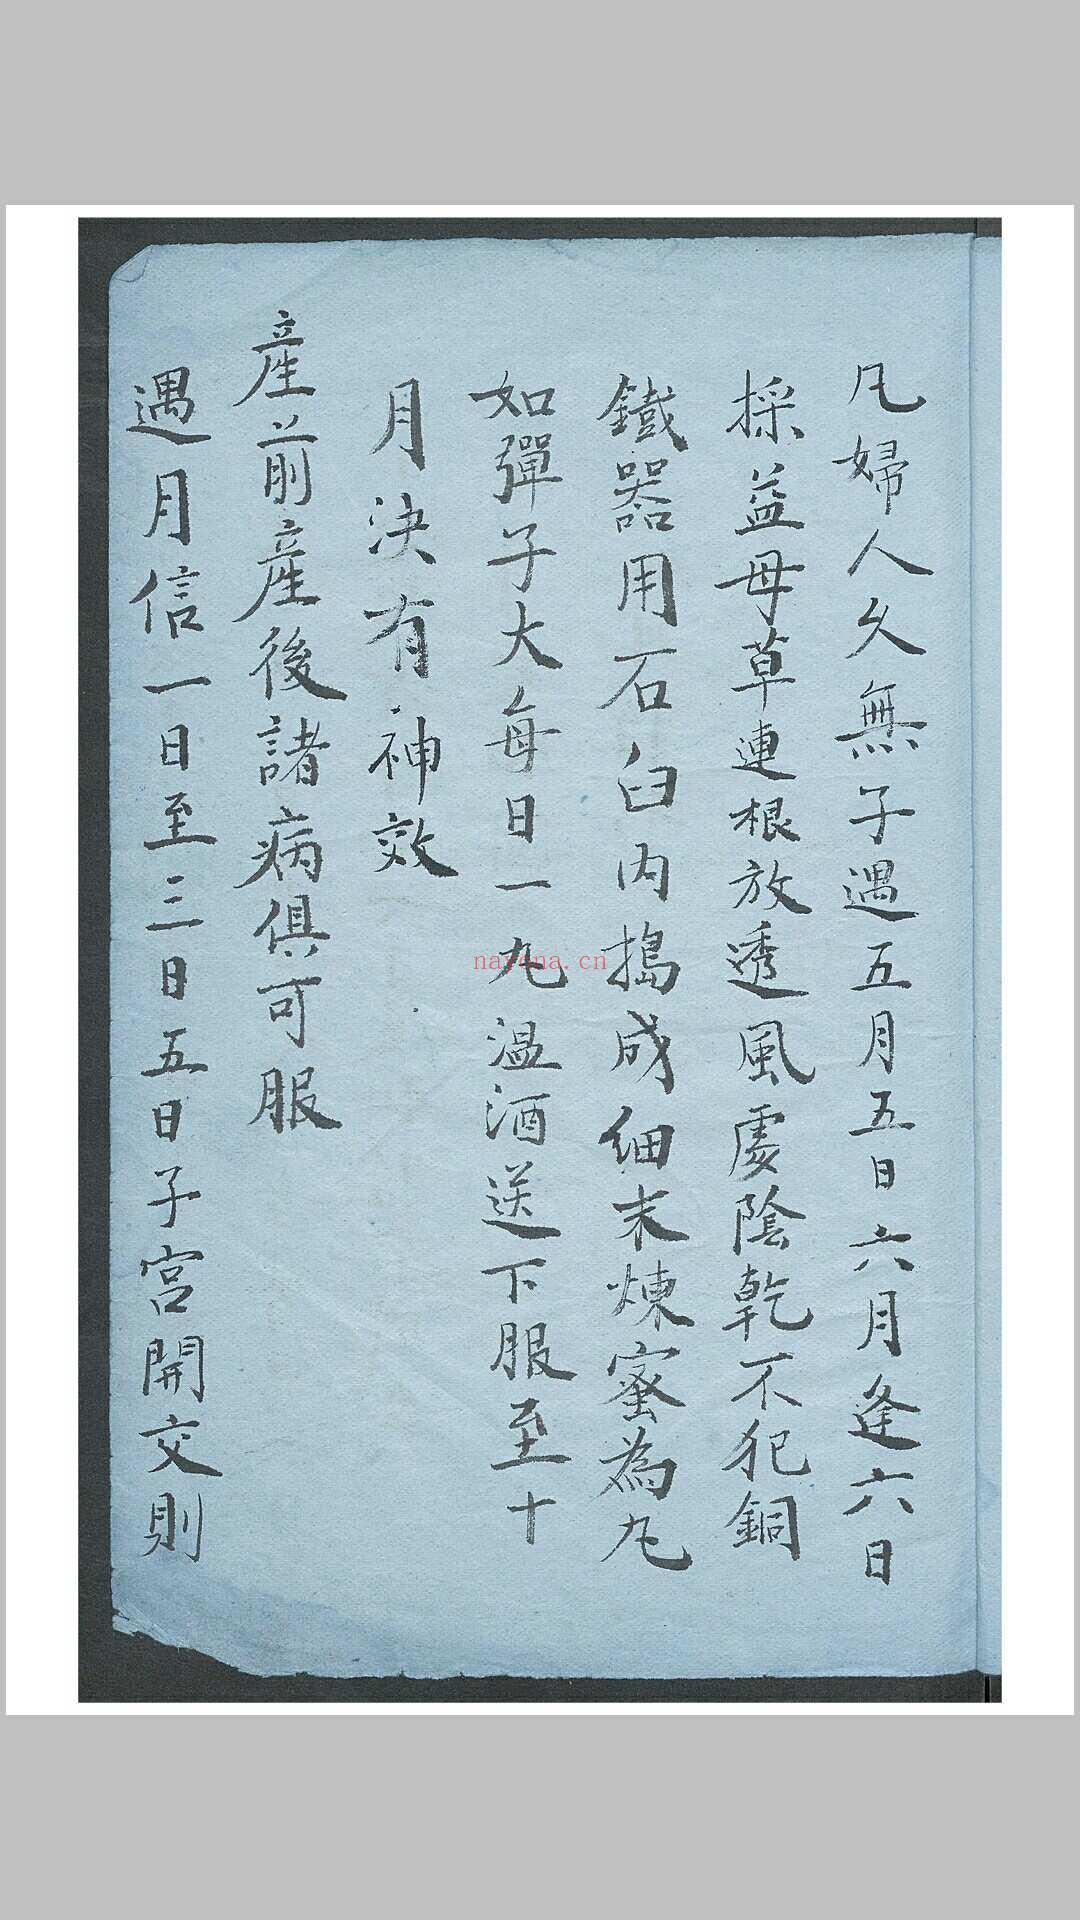 凡婦人久無子遇五月五日六月逢六日
採益母草連根放透風處陰乾不犯銅
鐵器用石臼内搗成細末煉蜜為丸
如彈子大每日一丸温酒送下服至十
月決有神效
産前産後諸病俱可服
遇月信一日至三日五日子宮開交則
nayona.cn